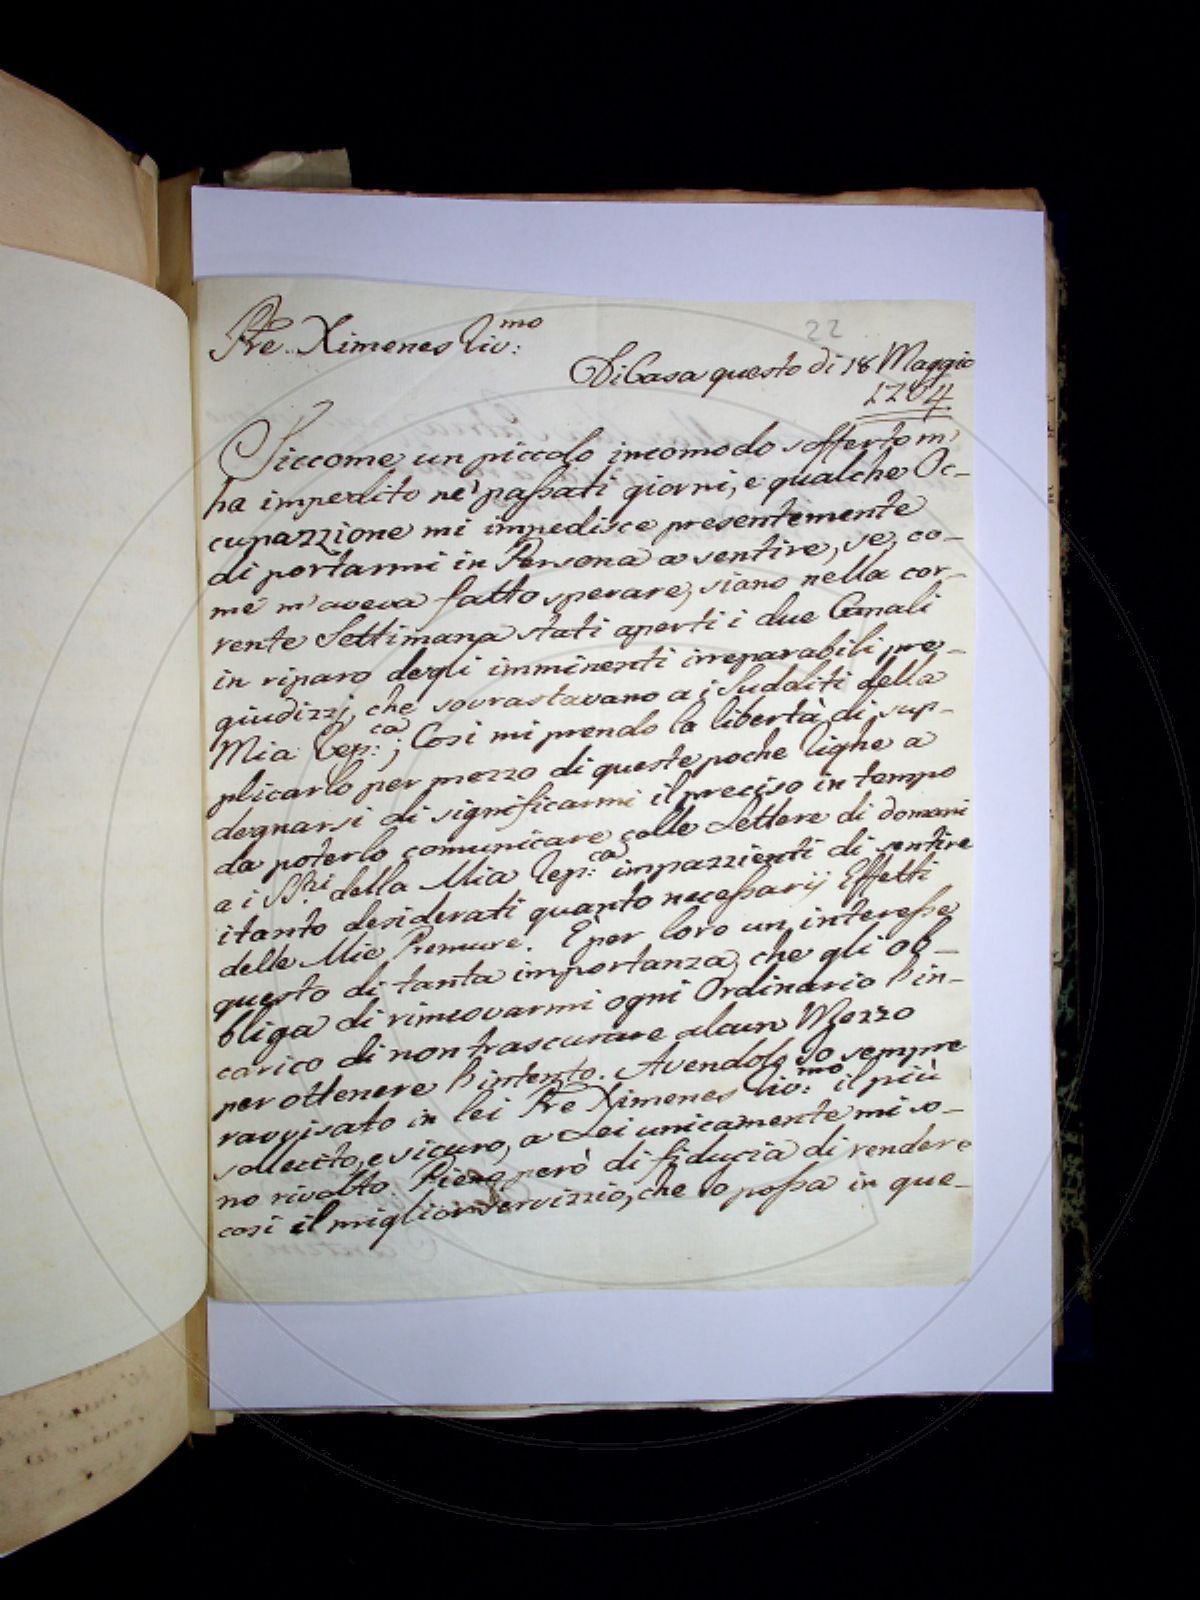 Pre. Ximenes Riv:mo
22
Di Casa questo di 18 Maggio
1764
Siccome un piccolo incomodo sofferto m'
ha impedito ne' passati giorni, e qualche Oc-
cupazzione mi impedisce presentemente
di portarmi in Persona a sentire, se, co-
me m'aveva fatto sperare, siano nella cor-
rente Settimana stati aperti i due Canali
in riparo degli imminenti irreparabili pre-
giudizzj, che sovrastavano a i Sudditi della
Mia Rep:ca; Così mi prendo la libertà di sup-
plicarlo per mezzo di queste poche righe a
degnarsi di significarmi il preciso in tempo
da poterlo comunicare colle Lettere di domani
a i SS.ri della Mia Rep:ca impazzienti di sentire
i tanto desiderati quanto necessarij Effetti
delle Mie Premure. È per loro un interesse
questo di tanta importanza, che gli ob-
bliga di rinuovarmi ogni Ordinario l'in-
carico di non trascurare alcun Mezzo
per ottenere l'intento. Avendolo Io sempre
ravvisato in lei Pre Ximenes Riv:mo il più
sollecito, e sicuro, a Lei unicamente mi so-
no rivolto. Pieno però di fiducia di rendere
così il miglior servizzio, che Io possa in que-